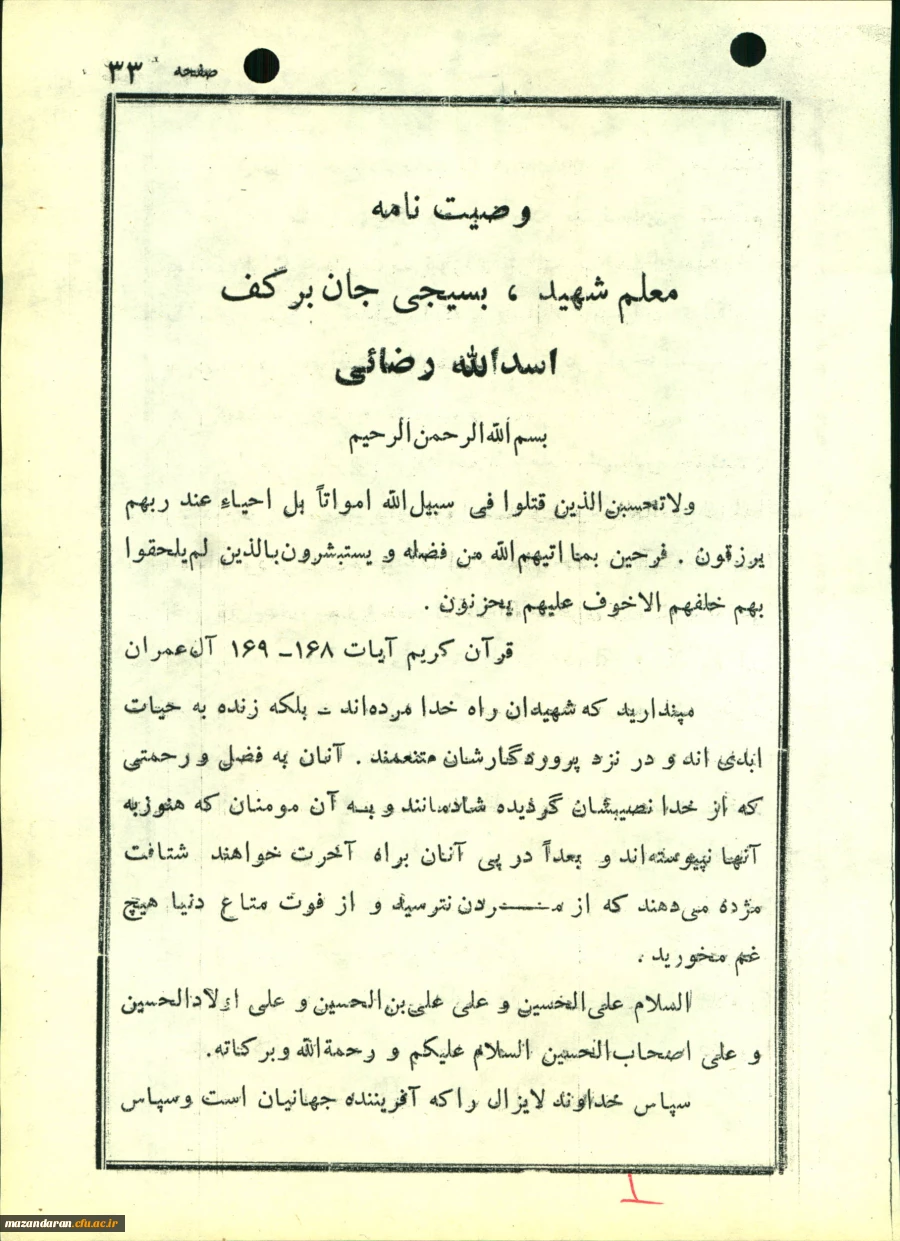 صفحه ۳۳
وصیت نامه
معلم شهید ، بسیجی جان برکف
اسدالله رضائی
بسم الله الرحمن الرحیم
ولاتحسبن الذین قتلوا فی سبیل الله امواتاً بل احیاء عند ربهم
یرزقون . فرحین بما اتیهم الله من فضله و یستبشرون بالذین لم یلحقوا
بهم خلفهم الاخوف علیهم یحزنون .
قرآن کریم آیات ۱۶۸ـ ۱۶۹ آل عمران
مپندارید که شهیدان راه خدا مرده‌اند ـ بلکه زنده به حیات
ابدی اند و در نزد پروردگارشان متنعمند . آنان به فضل و رحمتی
که از خدا نصیبشان گردیده شادمانند و به آن مومنان که هنوز به
آنها نپیوسته‌اند و بعداً در پی آنان براه آخرت خواهند شتافت
مژده می‌دهند که از مردن نترسید و از فوت متاع دنیا هیچ
غم مخورید .
السلام علی الحسین و علی علی بن الحسین و علی اولاد الحسین
و علی اصحاب الحسین السلام علیکم و رحمة الله و برکاته.
سپاس خداوند لایزال را که آفریننده جهانیان است و سپاس
1
mazandaran.cfu.ac.ir